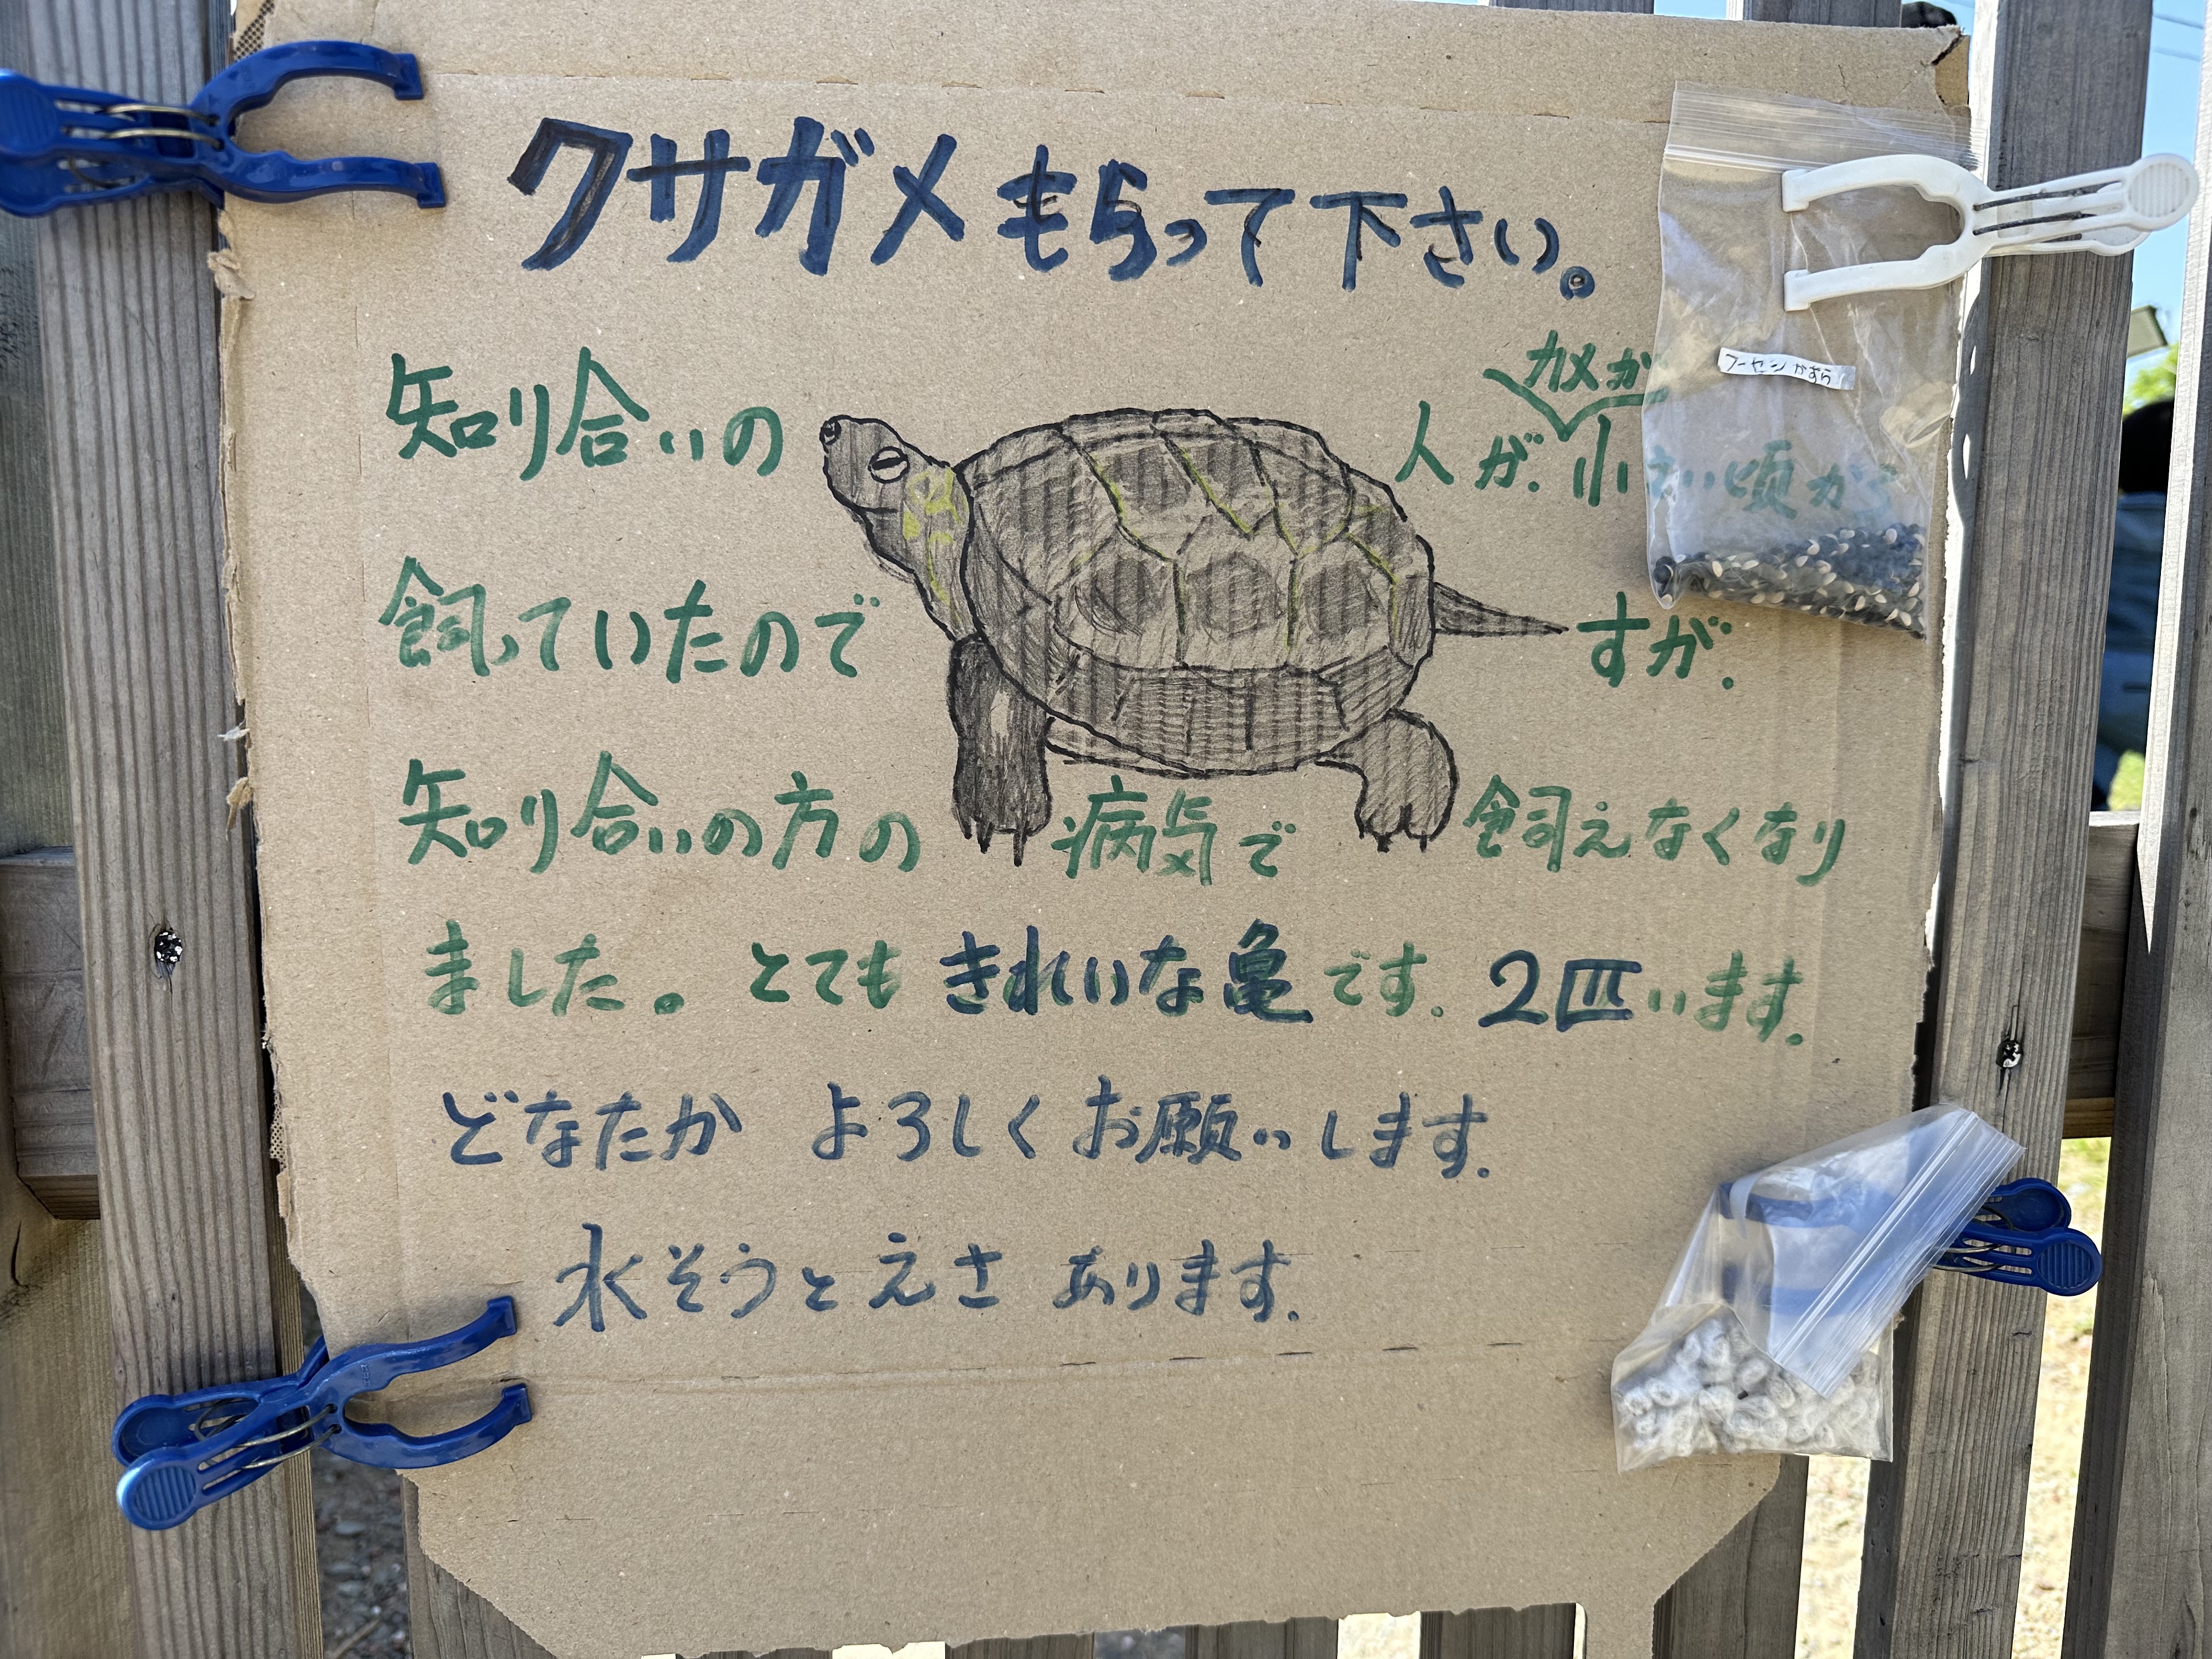 クサガメもらって下さい。
カメが
知り合いの人が、小さい頃から
フーセンかずら
飼っていたのですが、
知り合いの方の病気で飼えなくなり
ました。とてもきれいな亀です。2匹います。
どなたか よろしくお願いします。
水そうとえさ あります。